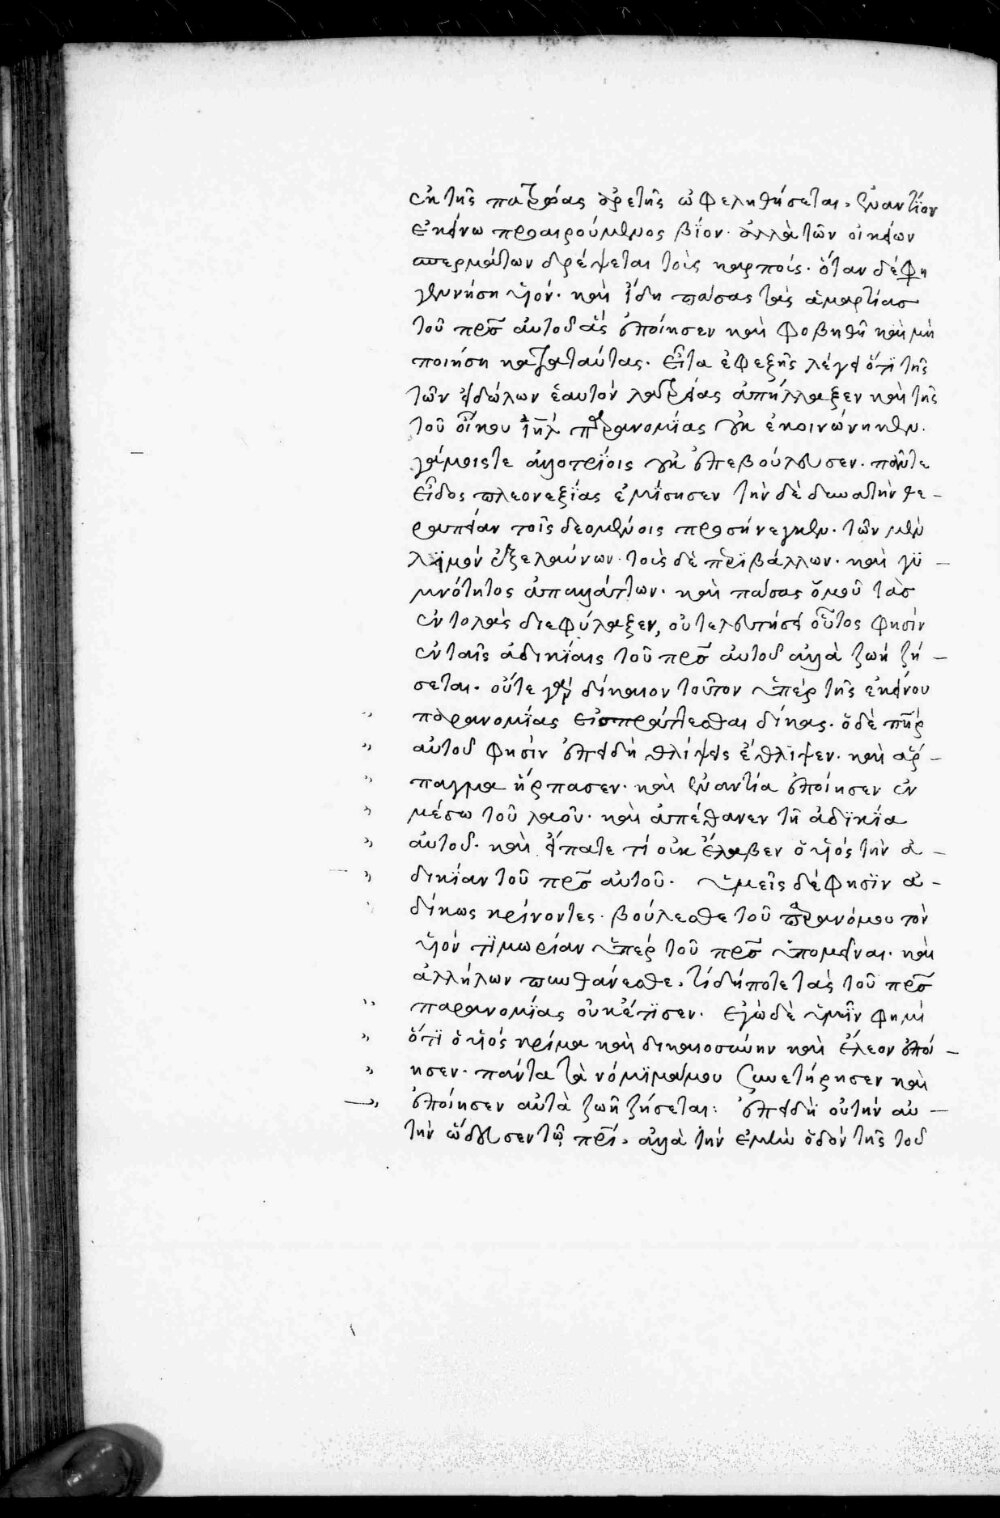 ἐκ τῆς πατρώας ἀρετῆς ὠφεληθήσεται. ἐναντίον
ἐκείνω προαιρούμενος βίον. ἀλλὰ τῶν οἰκείων
σπερμάτων δρέψεται τοὺς καρπούς. ὅταν δέ φη
γεννήση υἱόν. καὶ ἴδη πάσας τὰς ἁμαρτίας
τοῦ πρ̅σ αὐτοῦ ἃς ἐποίησεν καὶ φοβηθῆ καὶ μὴ
ποιήση κατὰ ταύτας. εἶτα ἐφεξῆς λέγει ὅτι τῆς
τῶν εἰδώλων ἑαυτὸν λατρείας ἀπήλλαξεν καὶ τῆς
τοῦ οἴκου ἰη̅λ παρανομίας οὐκ ἐκοινώνησεν.
γάμοις τε ἀλλοτρίοις οὐκ ἐπεβούλευσεν. πᾶν τε
εἶδος πλεονεξίας ἐμίσησεν τὴν δὲ δυνατὴν θε-
ραπείαν τοῖς δεομένοις προσήνεγκεν. τῶν μὲν
λιμὸν ἐξελαύνων. τοὺς δὲ περιβάλλων. καὶ γυ-
μνότητος ἀπαλλάττων. καὶ πάσας ὁμοῦ τὰς
ἐντολὰς διεφύλαξεν, οὐ τελευτήσει οὗτος φησὶν
ἐν ταῖς ἀδικίαις τοῦ πρ̅σ αὐτοῦ ἀλλὰ ζωῆ ζή-
σεται. οὔτε γὰρ δίκαιον τοῦτον ὑπὲρ τῆς ἐκείνου
παρανομίας εἰσπράττεσθαι δίκας. ὁ δὲ πη̅ρ
αὐτοῦ φησὶν ἐπειδὴ θλίψει ἔθλιψεν. καὶ ἅρ-
παγμα ἥρπασεν. καὶ ἐναντία ἐποίησεν ἐν
μέσω τοῦ λαοῦ. καὶ ἀπέθανεν τῆ ἀδικία
αὐτοῦ. καὶ εἴπατε τί οὐκ ἔλαβεν ὁ υἱός τὴν ἀ-
δικίαν τοῦ πρ̅σ αὐτοῦ. ὑμεῖς δέ φησὶν ἀ-
δίκως κρίνοντες. βούλεσθε τοῦ παρανόμου τὸν
υἱὸν τιμωρίαν ὑπὲρ τοῦ πρ̅σ ὑπομεῖναι. καὶ
ἀλλήλων πυνθάνεσθε. τί δήποτε τὰς τοῦ πρ̅σ
παρανομίας οὐκ ἔτισεν. ἐγὼ δὲ ὑμῖν φημὶ
ὅτι ὁ υἱός κρίμα καὶ δικαιοσύνην καὶ ἔλεον ἐποί-
ησεν. πάντα τὰ νόμιμά μου συνετήρησεν καὶ
ἐποίησεν αὐτὰ ζωῆ ζήσεται: ἐπειδὴ οὐ τὴν αὐ-
τὴν ὥδευσεν τῶ πρ̅ι. ἀλλὰ τὴν ἐμὴν ὁδόν τῆς τοῦ